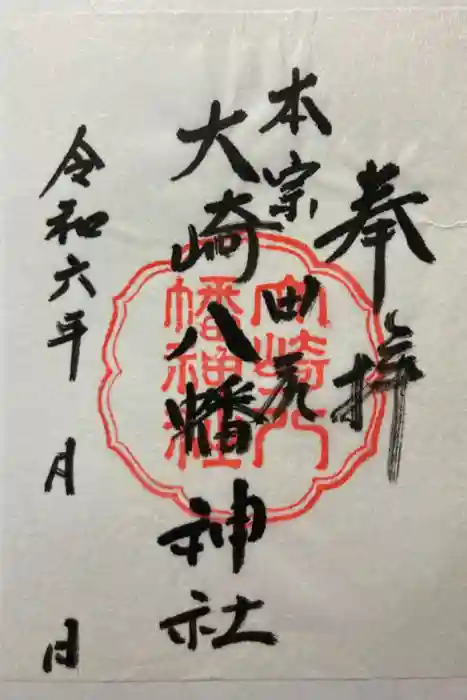 奉拝
本宗 田尻
大崎八幡神社
令和六年 月 日
大崎八
幡神社